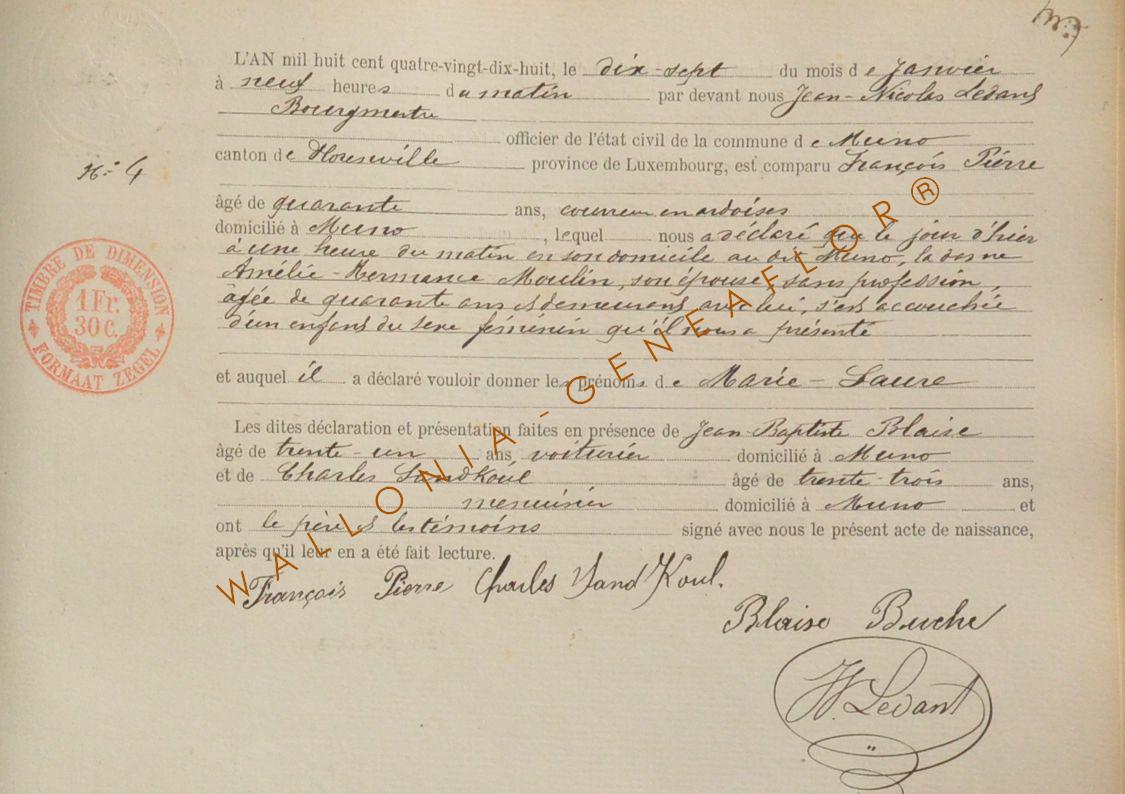 L'AN mil huit cent quatre-vingt-dix-huit, le dix-sept du mois de Janvier
à neuf heures du matin par devant nous Jean-Nicolas Ledant
Bourgmestre
officier de l'état civil de la commune de Muno
canton de Florenville province de Luxembourg, est comparu François Pierre
N° 4
âgé de quarante ans, couvreur en ardoises
domicilié à Muno, lequel nous a déclaré que le jour d'hier
à une heure du matin en son domicile au dit Muno, la dame
Amélie-Hermance Moulin, son épouse, sans profession,
âgée de quarant ans et demeurant avec lui, s'est accouchée
d'un enfant du sexe féminin qu'il nous a présenté
TIMBRE DE DIMENSION
1 Fr.
30 C.
FORMAAT ZEGEL
et auquel il a déclaré vouloir donner les prénoms de Marie-Laure
Les dites déclaration et présentation faites en présence de Jean-Baptiste Blaise
âgé de trente-un ans voiturier domicilié à Muno
et de Charles Sandkoul âgé de trente-trois ans,
menuisier domicilié à Muno et
ont le père et les témoins signé avec nous le présent acte de naissance,
après qu'il leur en a été fait lecture.
François Pierre Charles Sand Koul.
Blaise Buche
Ledant
WALLONIA-GENEAFLOR®